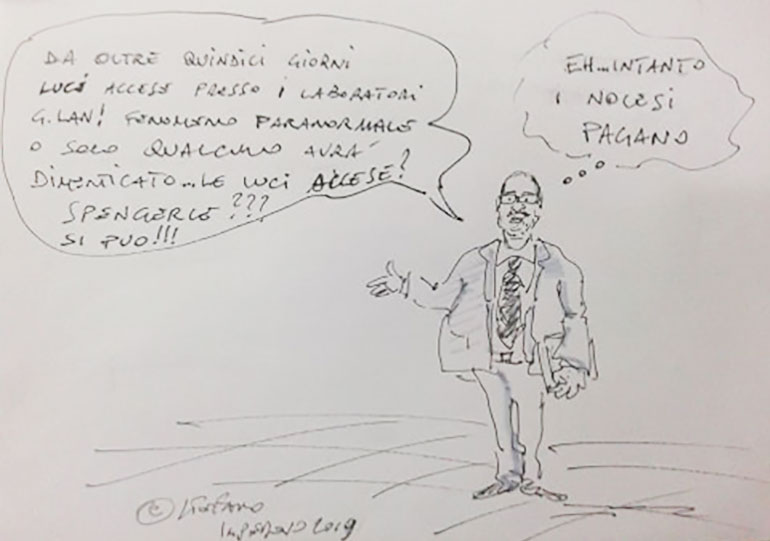 DA OLTRE QUINDICI GIORNI
LUCI ACCESE PRESSO I LABORATORI
G. LAN! FENOMENO PARANORMALE
O SOLO QUALCUNO AVRA'
DIMENTICATO...LE LUCI ACCESE?
SPENGERLE???
SI PUO!!!
EH...INTANTO
I NOCESI
PAGANO
© STEFANO
IMPEDOVO 2019